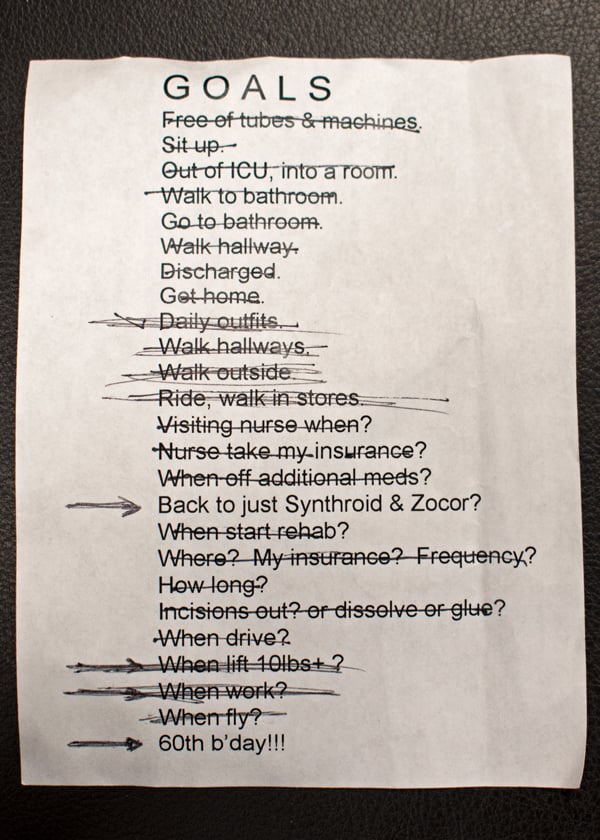 GOALS
Free of tubes & machines.
Sit up.
Out of ICU, into a room.
Walk to bathroom.
Go to bathroom.
Walk hallway.
Discharged.
Get home.
Daily outfits.
Walk hallways.
Walk outside.
Ride, walk in stores.
Visiting nurse when?
Nurse take my insurance?
When off additional meds?
Back to just Synthroid & Zocor?
When start rehab?
Where?  My insurance?  Frequency?
How long?
Incisions out? or dissolve or glue?
When drive?
When lift 10lbs+ ?
When work?
When fly?
60th b'day!!!